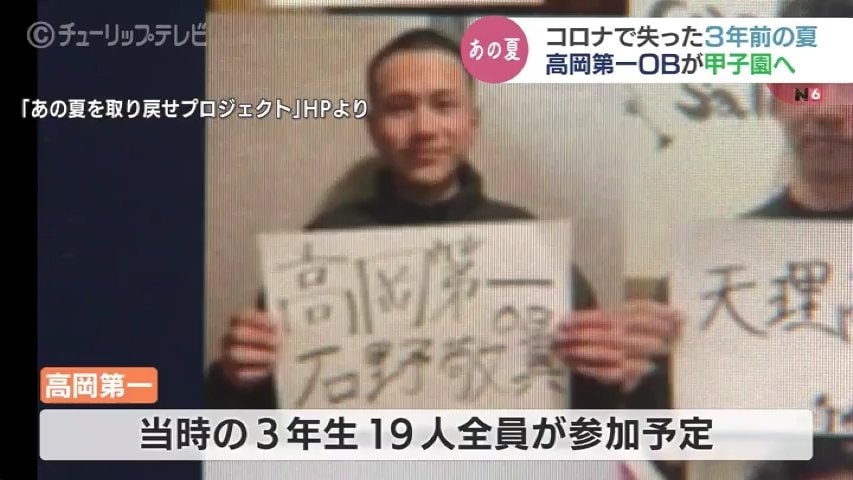 ©チューリップテレビ
あの夏
コロナで失った3年前の夏
高岡第一OBが甲子園へ
N6
「あの夏を取り戻せプロジェクト」HPより
高岡第一
OB
石野
天理
高岡第一
当時の3年生19人全員が参加予定